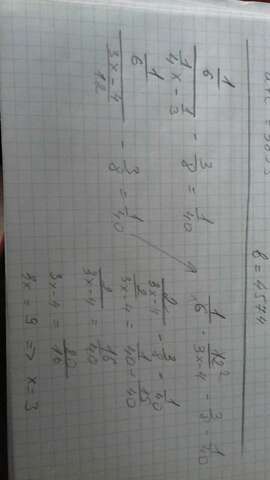 b = 4574
1/6 / (1/4 x - 1/3) - 3/8 = 1/40
1/6 · 12²/(3x-4) - 3/8 = 1/40
1/6 / ((3x-4)/12) - 3/8 = 1/40
2/(3x-4) - 3/8 = 1/40
2/(3x-4) = 1/40 + 15/40
2/(3x-4) = 16/40
3x-4 = 80/16
3x = 9 => x = 3